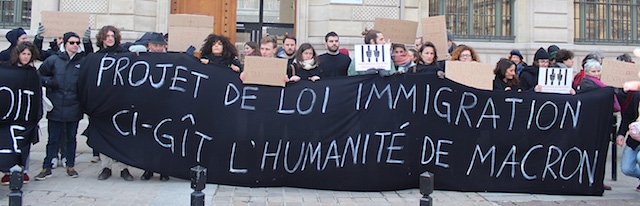 PROJET DE LOI IMMIGRATION
CI-GÎT L'HUMANITÉ DE MACRON
OIT
LE